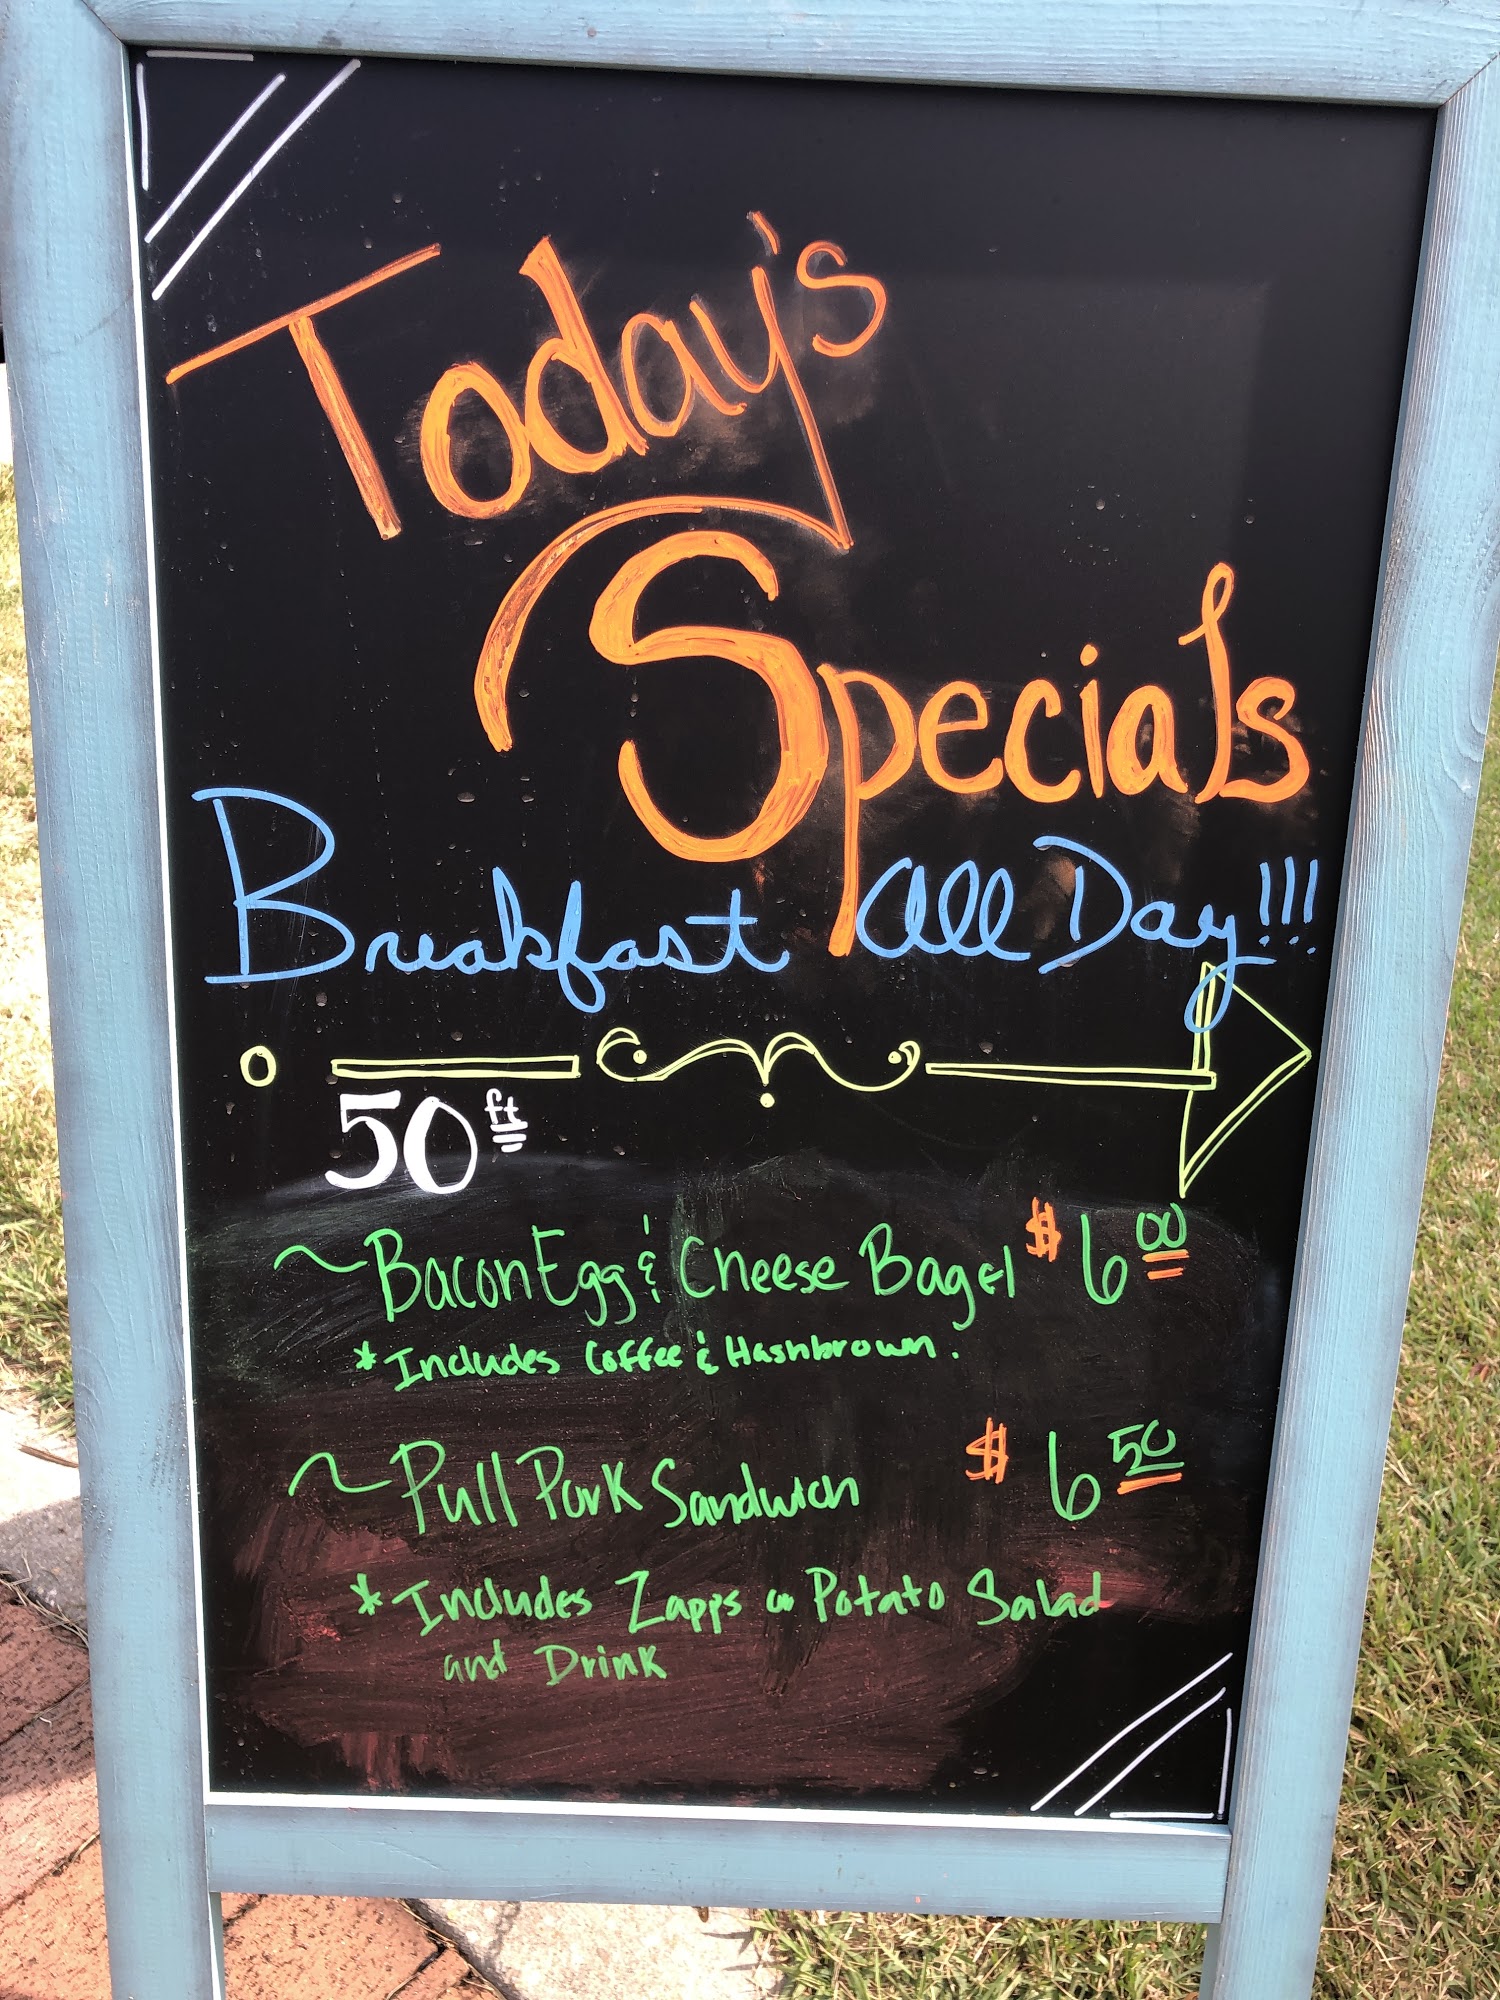 Today's
Specials
Breakfast All Day!!!
50 ft
~Bacon Egg & Cheese Bagel $ 6 00
*Includes Coffee & Hashbrown.
~Pull Pork Sandwich $ 6 50
*Includes Zapps or Potato Salad
and Drink